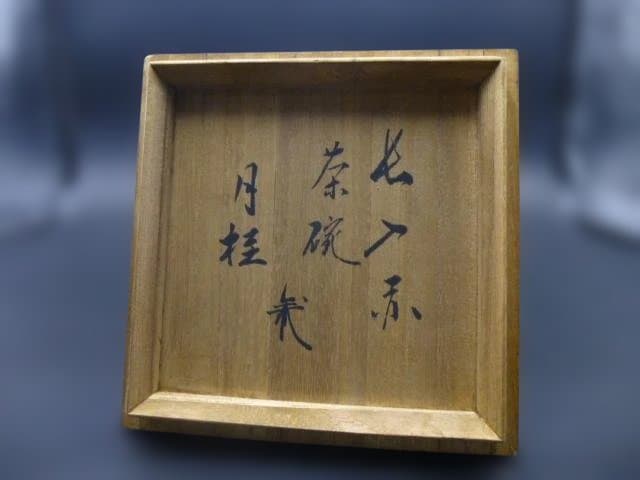 長入赤
茶碗
月桂